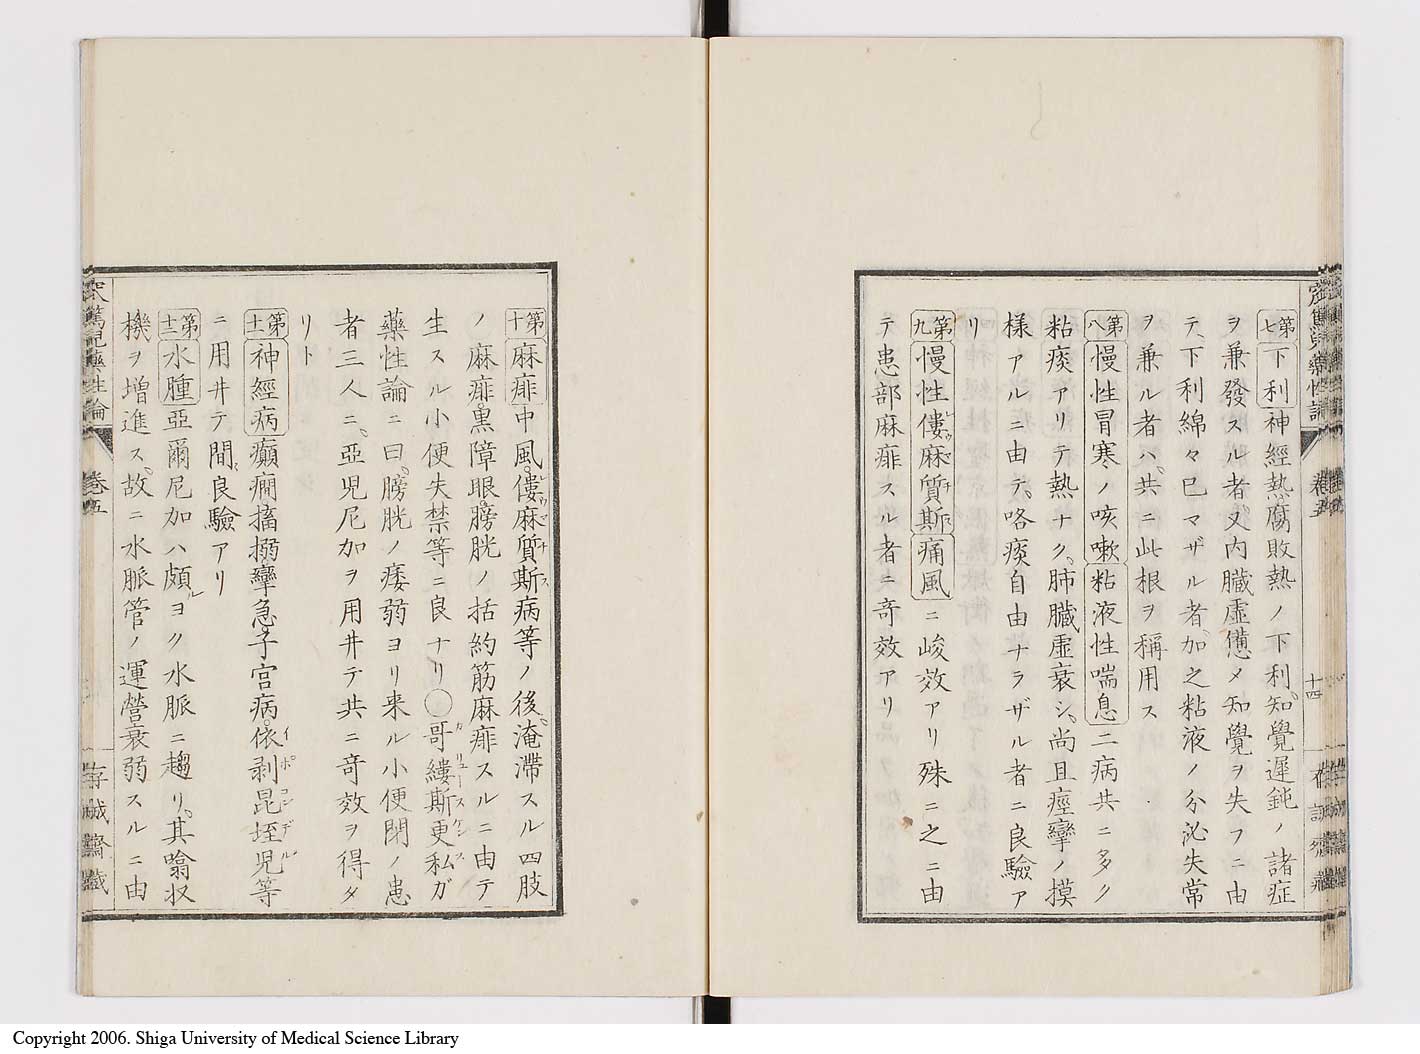 第七 下利 神經熱腐敗熱ノ下利、知覺遲鈍ノ諸症
ヲ兼發スル者、又内臟虛憊メ知覺ヲ失フニ由
テ、下利綿々已マザル者、加之粘液ノ分泌失常
ヲ兼ル者ハ、共ニ此根ヲ稱用ス
第八 慢性冒寒ノ咳嗽 粘液性喘息 二病共ニ多ク
粘痰アリテ熱ナク、肺臟虛衰シ、尚且痙攣ノ摸
樣アルニ由テ、咯痰自由ナラザル者ニ良驗ア
リ
第九 慢性僂麻質斯 痛風 ニ峻效アリ殊ニ之ニ由
テ患部麻痱スル者ニ奇效アリ
十四
第十 麻痱 中風、僂麻質斯病等ノ後、淹滯スル四肢
ノ麻痱、黒障眼膀胱ノ括約筋麻痱スルニ由テ
生スル小便失禁等ニ良ナリ○哥縷斯更私ガ
藥性論ニ曰、膀胱ノ痿弱ヨリ来ル小便閉ノ患
者三人ニ、亞児尼加ヲ用井テ共ニ奇效ヲ得タ
リト
第十一 神經病 癲癇搐搦攣急子宮病、依剥昆垤児等
ニ用井テ間良驗アリ
第十二 水腫 亞爾尼加ハ頗ヨク水脈ニ趨リ、其噏収
機ヲ增進ス、故ニ水脈管ノ運營衰弱スルニ由
卷五
Copyright 2006. Shiga University of Medical Science Library